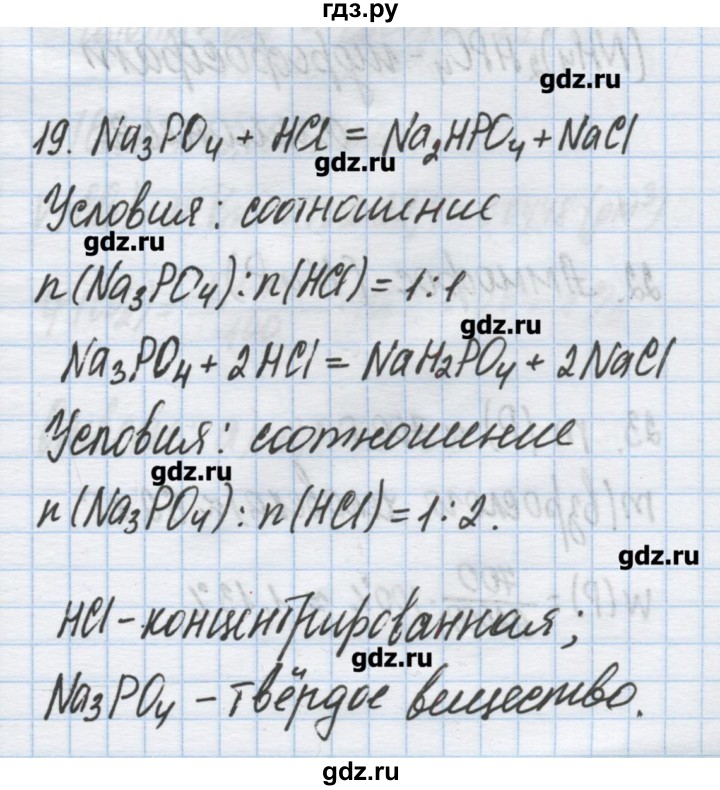 гдз.ру
gdz.ru
19. Na₃PO₄ + HCl = Na₂HPO₄ + NaCl
gdz.ru
Условия: соотношение
gdz.ru
n(Na₃PO₄):n(HCl)=1:1
gdz.ru
Na₃PO₄ + 2HCl = NaH₂PO₄ + 2NaCl
Условия: соотношение
gdz.ru
n(Na₃PO₄):n(HCl)=1:2.
gdz.ru
HCl - концентрированная;
gdz.ru
Na₃PO₄ - твёрдое вещество.
gdz.ru